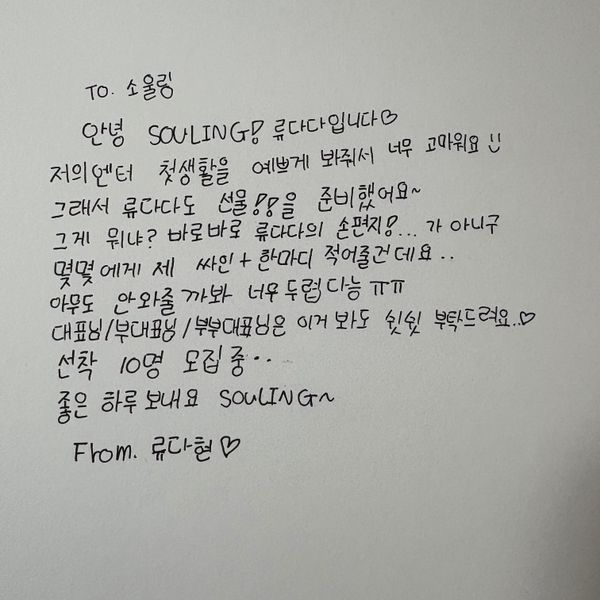 TO. 소울링
안녕 SOULING! 류다다입니다♡
저의엔터 첫생활을 예쁘게 봐줘서 너무 고마워요 :)
그래서 류다다도 선물!!을 준비했어요~
그게 뭐냐? 바로바로 류다다의 손편지!... 가 아니구
몇몇에게 제 싸인 + 한마디 적어줄건데요..
아무도 안와줄까봐 너무두렵다능 ㅠㅠ
대표님/부대표님/부부대표님은 이거 봐도 쉿쉿 부탁드려요..♡
선착 10명 모집 중..
좋은 하루보내요 SOULING~
From. 류다현♡